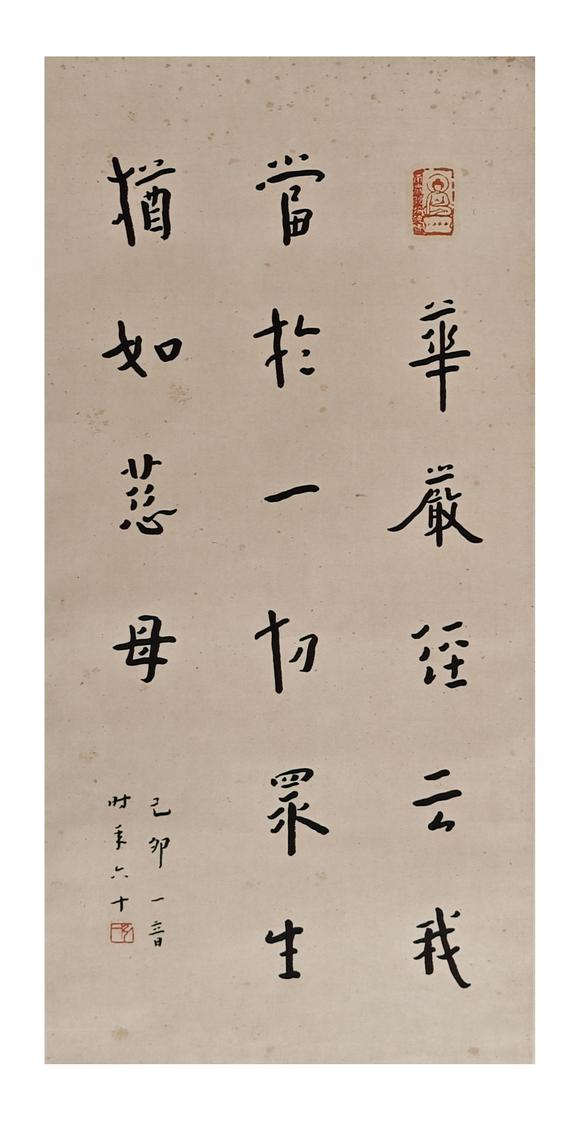 華嚴經云我
當於一切眾生
猶如慈母
己卯一音
時年六十